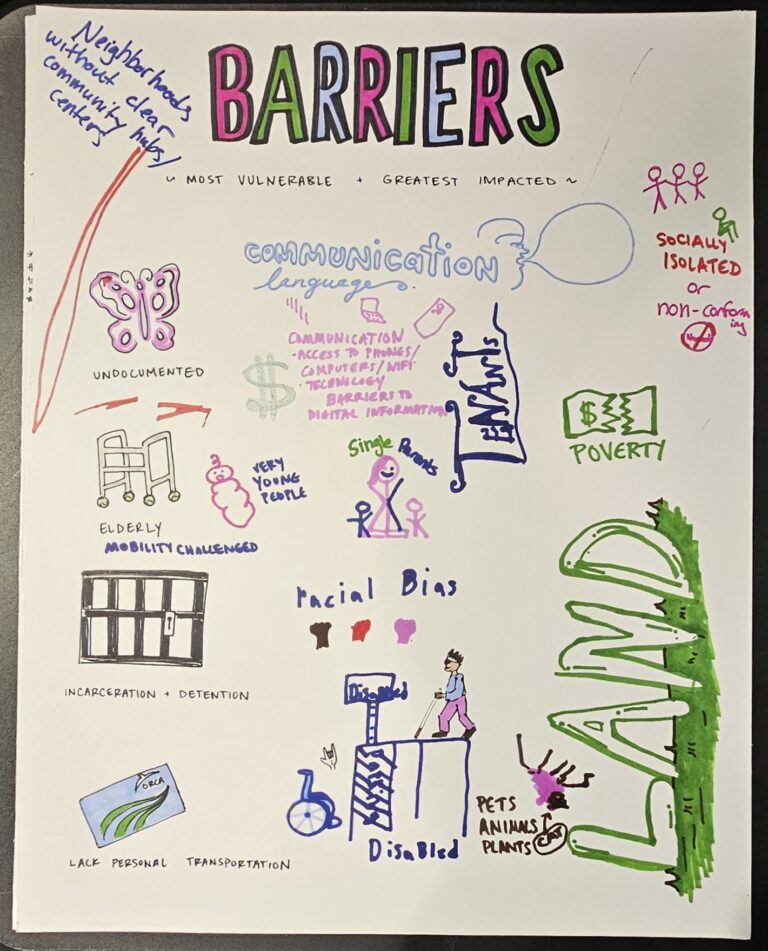 Neighborhoods
without clear
community hubs/
centers
BARRIERS
~ MOST VULNERABLE + GREATEST IMPACTED ~
SOCIALLY
ISOLATED
or
non-conform
ing
COMMUNICATION
language
UNDOCUMENTED
COMMUNICATION
-ACCESS TO PHONES/
COMPUTERS/WIFI
·TECHNOLOGY
BARRIERS TO
DIGITAL INFORMATION
TENANTS
$
$
POVERTY
ELDERLY
MOBILITY CHALLENGED
VERY
YOUNG
PEOPLE
Single Parents
racial Bias
INCARCERATION + DETENTION
LAND
Disabled
Disabled
ORCA
LACK PERSONAL TRANSPORTATION
PETS
ANIMALS
PLANTS
CAT